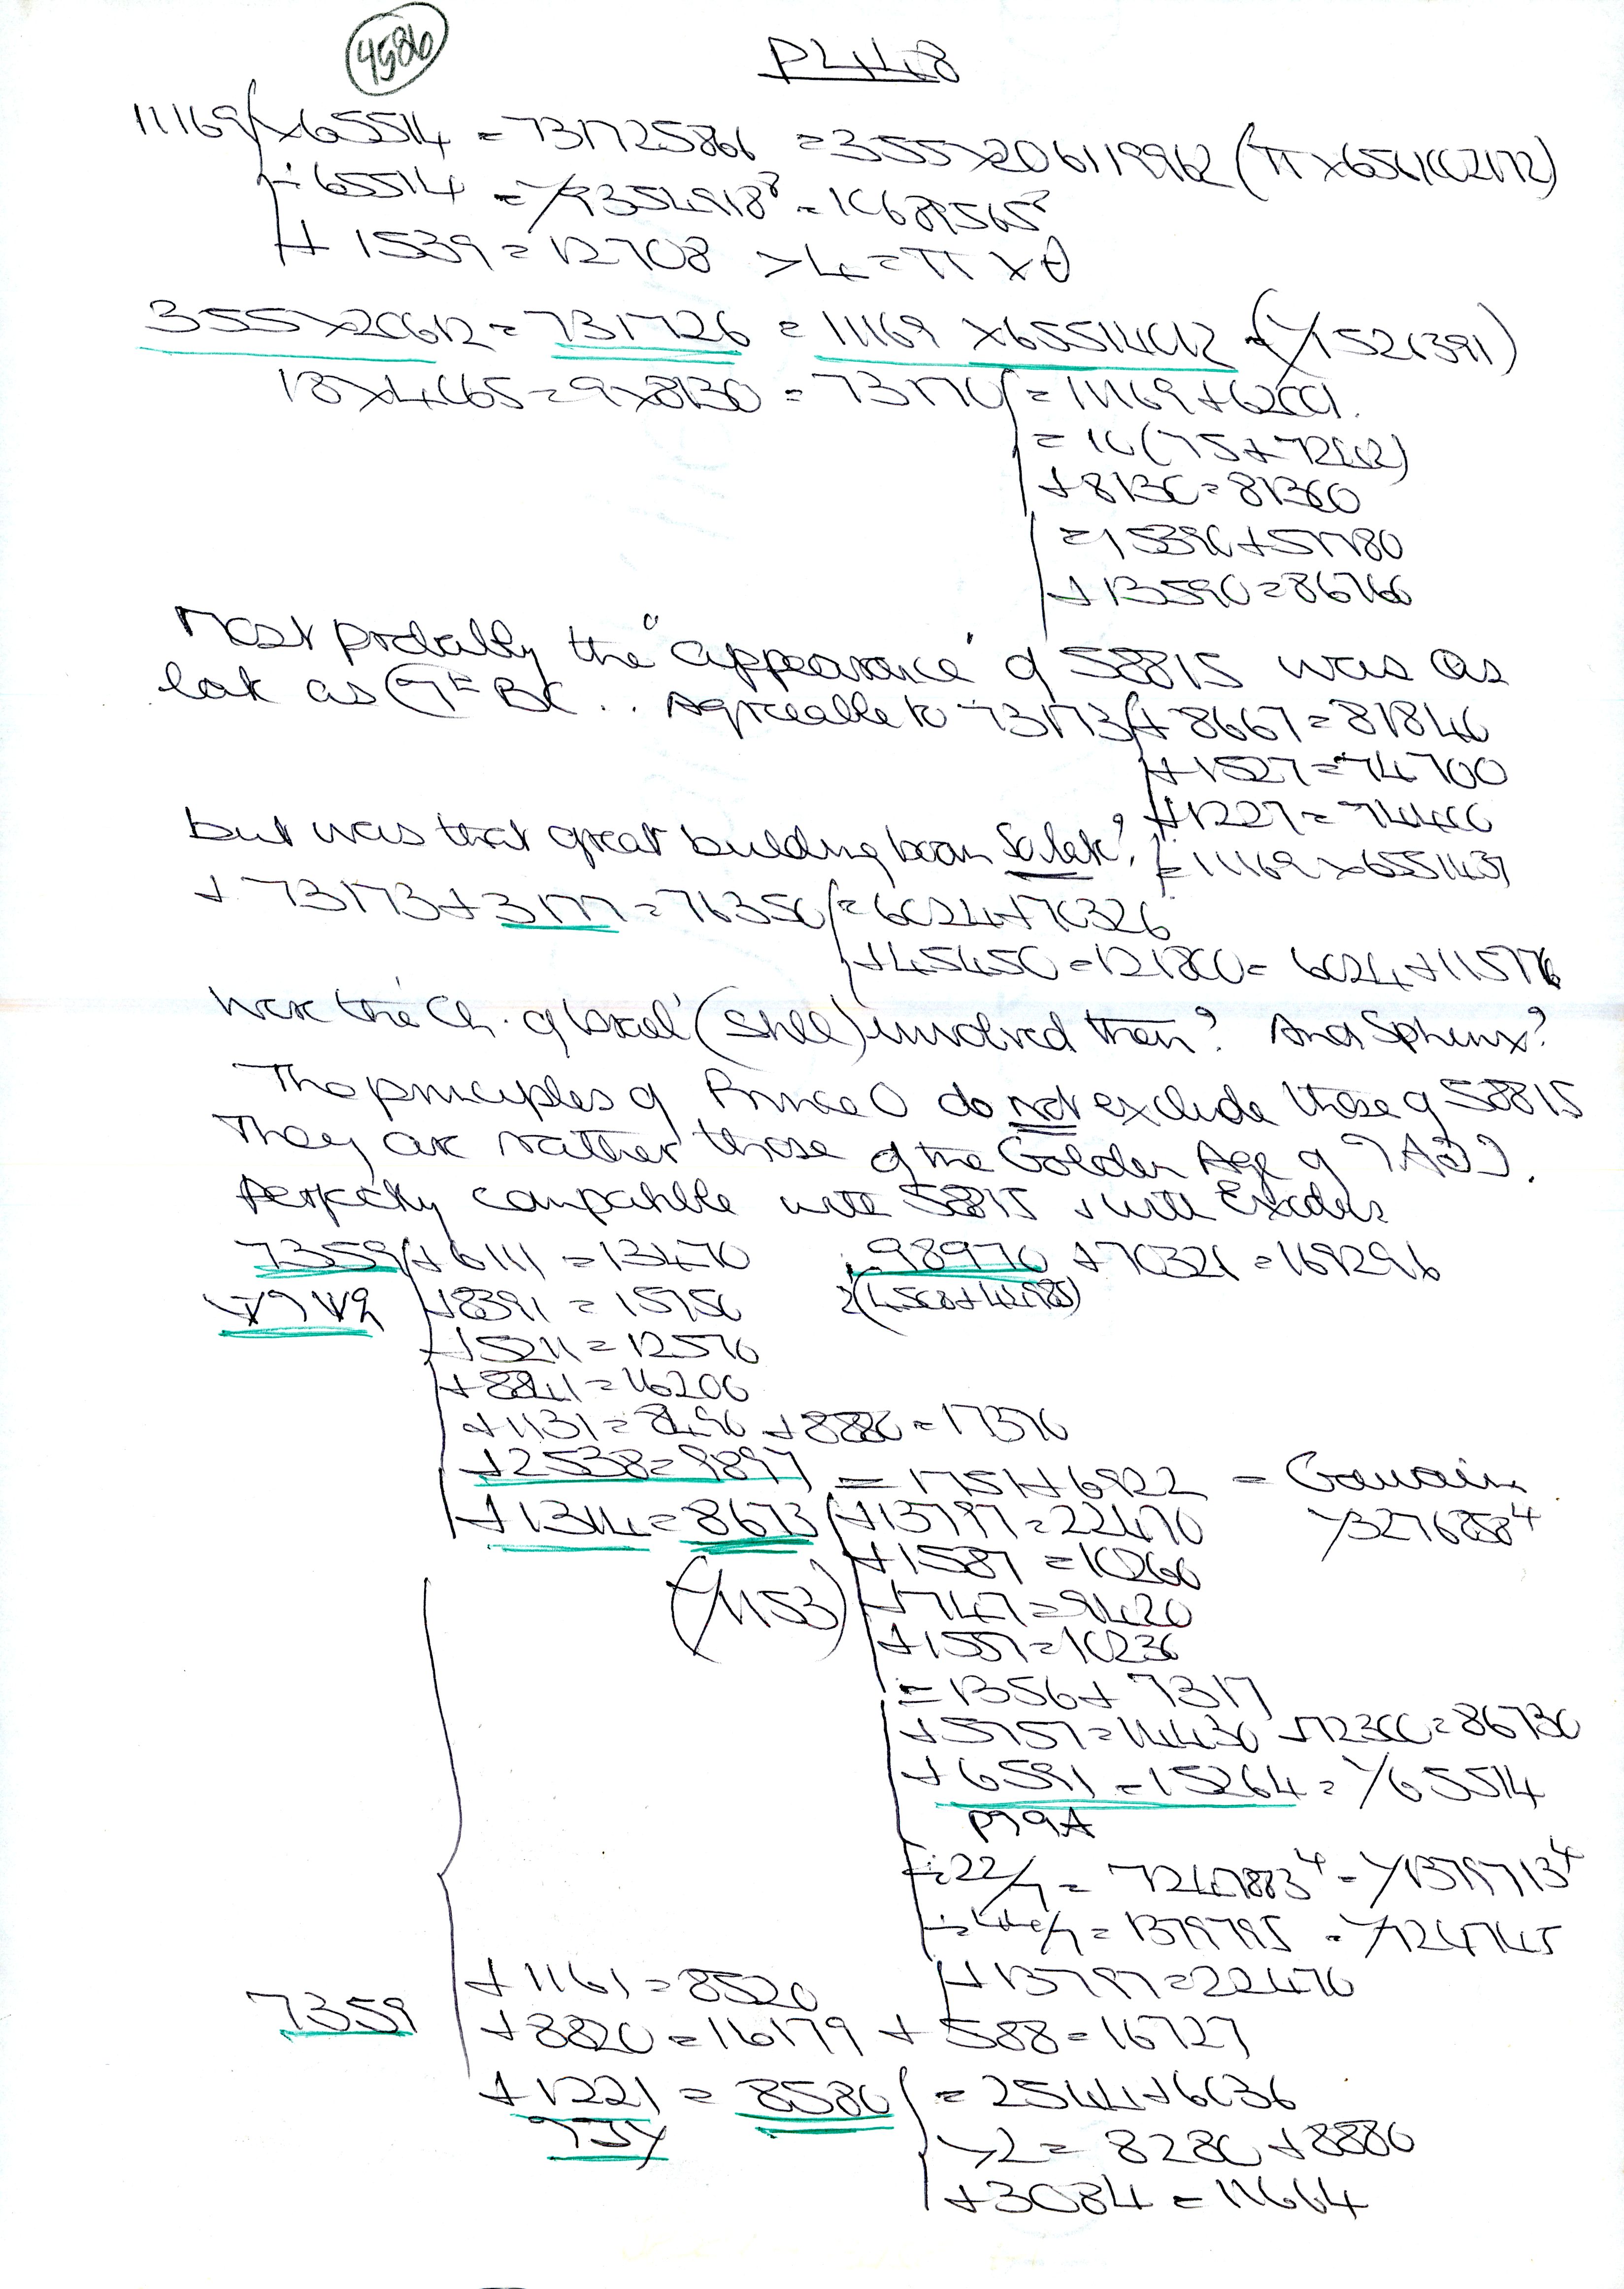 4586
11169 × 65514 = 731725866 = 355 × 206119962 (π × 656102172)
÷ 65514
+ 1539 = 12708 > 4 = π × θ
355 × 20612 = 731726 = 11169 × 65514012
18 × 4065 = 9 × 8130 = 73170 = 11169 + 62001.
+ 8130 = 81300
= 15390 + 57780
+ 13590 = 86760
Most probably the "appearance" of 58815 was as
late as BC .. Agreeable to 73173 + 8667 = 81840
+ 1527 = 74700
+ 1227 = 74400
but was that great building born So late? = 11169 × 655143
+ 73173 + 3177 = 76350 = 6024 + 70326
+ 45450 = 121800 = 6024 + 115776
Were the Ch. of Israel' (still) involved then? And Sphinx?
The principles of Prince O do not exclude those of 58815
They are rather those of the Golden Age of
Perfectly compatible with 58815 + with Exodus
7359 + 6111 = 13470 98970 + 70326 = 169296
+ 8391 = 15750
+ 5211 = 12570
+ 8841 = 16200
+ 1131 = 8490 + 8880 = 17370
+ 2538 = 9897 = 1751 + 6922 = Gawain
+ 1314 = 8673 + 13797 = 22470
+ 1587 = 10260
(1153) + 747 = 9420
+ 1557 = 10230
= 1356 + 7317
+ 5757 = 14430 + 72300 = 86730
+ 6591 = 15264 = 1/65514
÷ 22/7
÷ 44/7 = 1379795
+ 1161 = 8520 + 13797 = 22470
7359 + 8820 = 16179 + 588 = 16727
+ 1221 = 8580 = 2544 + 6036
> 2 = 8280 + 8880
+ 3084 = 11664